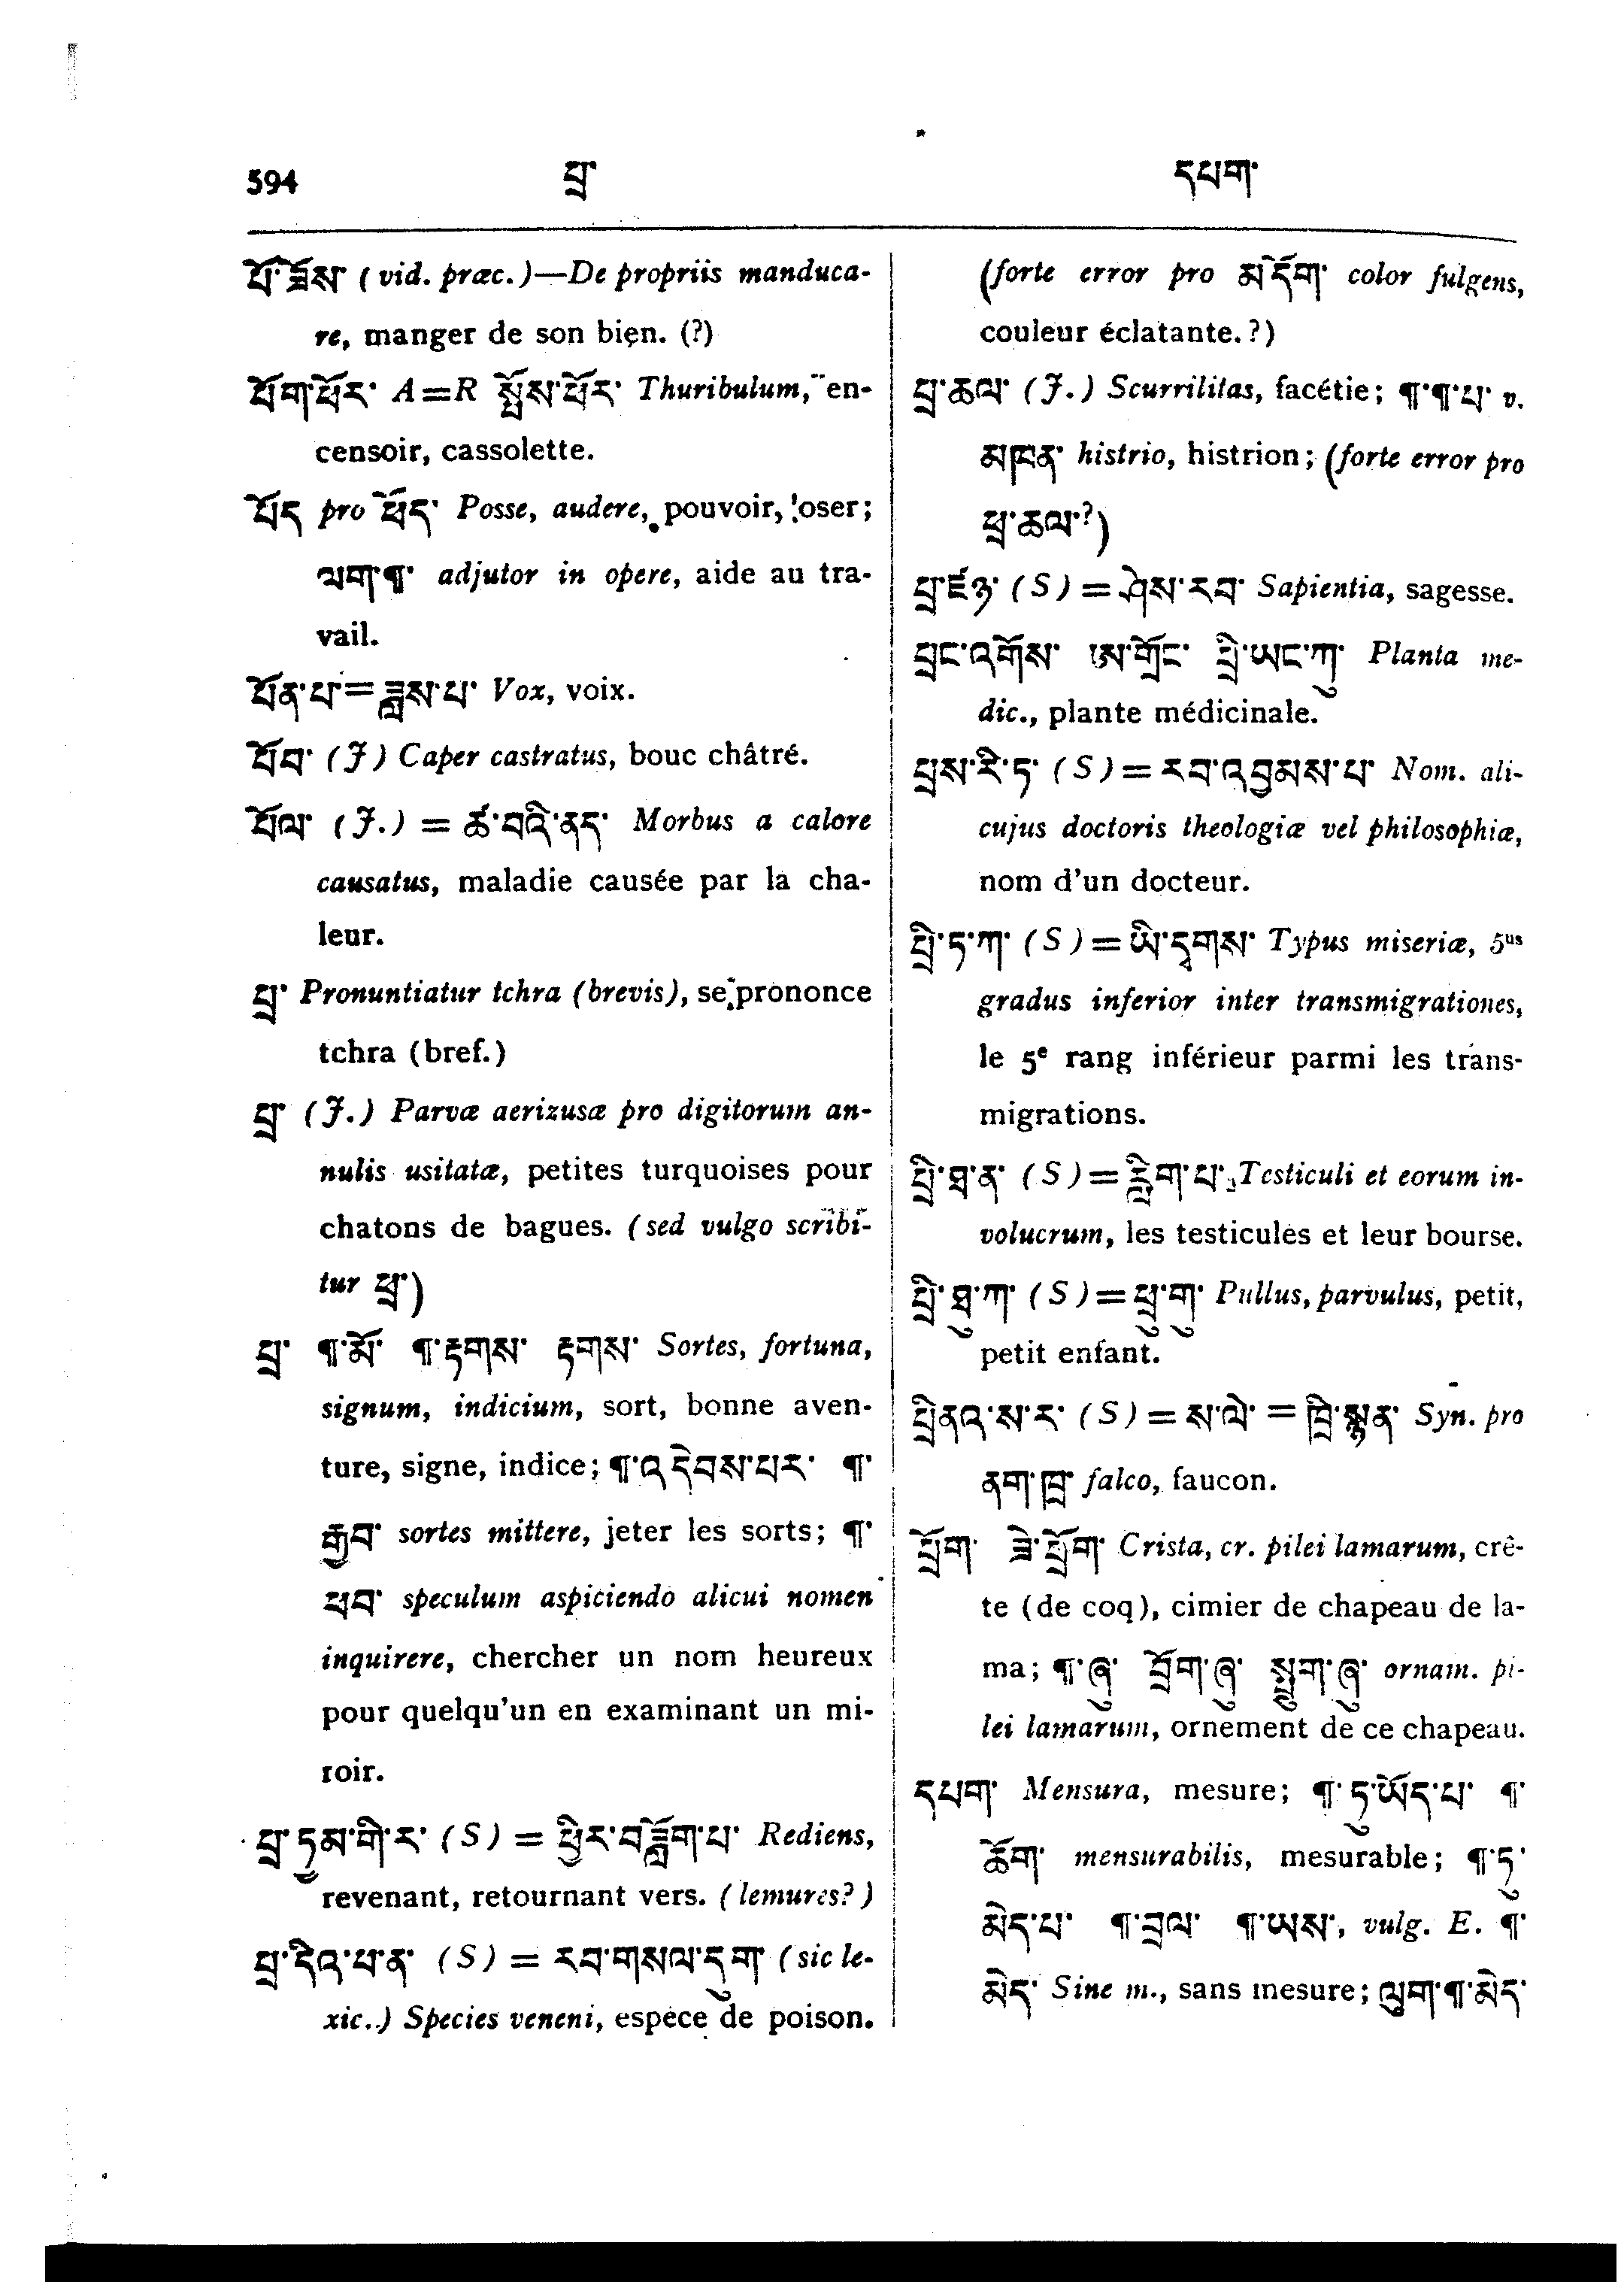 594 པྲ་ དཔག་
པོ་ཟོས་ (vid. præc.)—De propriis manduca-
re, manger de son bien. (?)
པོག་ཕོར་ A=R སྤོས་ཕོར་ Thuribulum, en-
censoir, cassolette.
པོད pro ཕོད་ Posse, audere, pouvoir, oser;
ལག་¶་ adjutor in opere, aide au tra-
vail.
པོན་པ་=ཟླས་པ་ Vox, voix.
པོབ་ (J) Caper castratus, bouc châtré.
པོལ་ (J.) = ཚ་བའི་ནད་ Morbus a calore
causatus, maladie causée par la cha-
leur.
པྲ་ Pronuntiatur tchra (brevis), se prononce
tchra (bref.)
པྲ་ (J.) Parvæ aerizusæ pro digitorum an-
nulis usitatæ, petites turquoises pour
chatons de bagues. (sed vulgo scribi-
tur ཕྲ་)
པྲ་ ¶་མོ་ ¶་རྟགས་ རྟགས་ Sortes, fortuna,
signum, indicium, sort, bonne aven-
ture, signe, indice; ¶་འདེབས་པར་ ¶་
རྒྱབ་ sortes mittere, jeter les sorts; ¶་
ཕབ་ speculum aspiciendo alicui nomen
inquirere, chercher un nom heureux
pour quelqu'un en examinant un mi-
roir.
པྲ་ཏྱུམ་གི་ར་ (S) = ཕྱིར་བཟློག་པ་ Rediens,
revenant, retournant vers. (lemures?)
པྲ་དིའ་པ་ན་ (S) = རབ་གསལ་དུག་ (sic le-
xic..) Species veneni, espèce de poison.
(forte error pro མདོག་ color fulgens,
couleur éclatante.?)
པྲ་ཆལ་ (J.) Scurrilitas, facétie; ¶་¶་པ་ v.
མཁན་ histrio, histrion; (forte error pro
ཕྲ་ཆལ་?)
པྲ་ཛཉ་ (S) = ཤེས་རབ་ Sapientia, sagesse.
པྲང་འགོས་ ཨ་གྲོང་ པྲི་ཡང་ཀུ་ Planta me-
dic., plante médicinale.
པྲས་རི་ཏ་ (S) = རབ་འབྱམས་པ་ Nom. ali-
cujus doctoris theologiæ vel philosophiæ,
nom d'un docteur.
པྲི་ཏ་ཀ་ (S) = ཡི་དྭགས་ Typus miseriæ, 5us
gradus inferior inter transmigrationes,
le 5e rang inférieur parmi les trans-
migrations.
པྲི་ཐ་ན་ (S) = རླིག་པ་ Testiculi et eorum in-
volucrum, les testicules et leur bourse.
པྲི་ཐུ་ཀ་ (S) = ཕྲུ་གུ་ Pullus, parvulus, petit,
petit enfant.
པྲིནའ་ས་ར་ (S) = ས་ལེ་ = ཁྲི་སྙན་ Syn. pro
ནག་ཁྲ་ falco, faucon.
པྲོག་ ཟེ་པྲོག་ Crista, cr. pilei lamarum, crê-
te (de coq), cimier de chapeau de la-
ma; ¶་ཞུ་ བྲོག་ཞུ་ སྤྲུག་ཞུ་ ornam. pi-
lei lamarum, ornement de ce chapeau.
དཔག་ Mensura, mesure; ¶་ཏུ་ཡོད་པ་ ¶་
ཆོག་ mensurabilis, mesurable; ¶་ཏུ་
མེད་པ་ ¶་བྲལ་ ¶་ཡས་, vulg. E. ¶་
མེད་ Sine m., sans mesure; ལུག་¶་མེད་